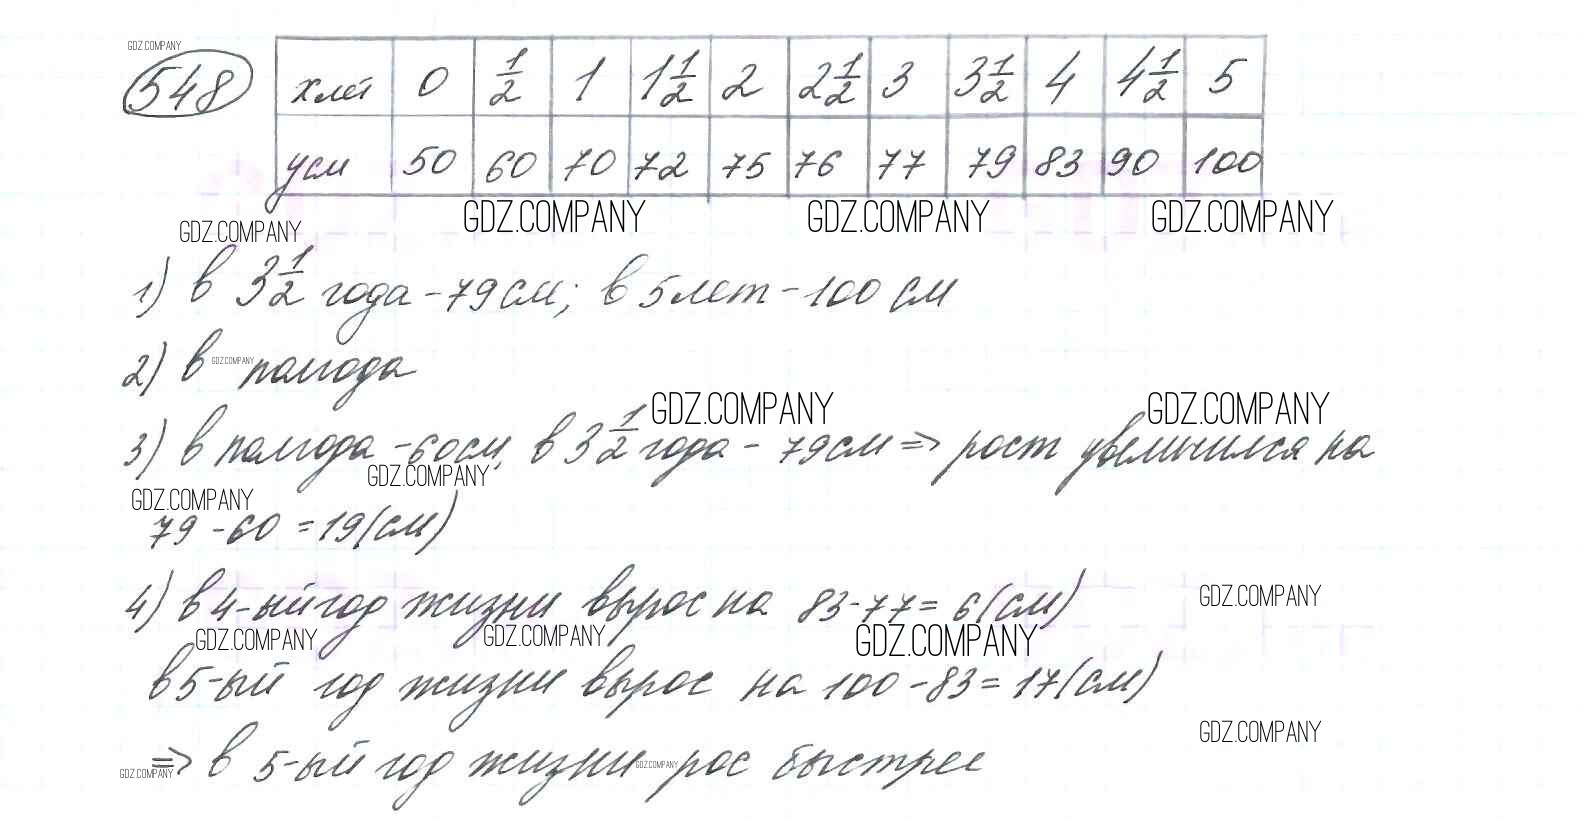 GDZ.COMPANY
548
x лет 0 1/2 1 1 1/2 2 2 1/2 3 3 1/2 4 4 1/2 5
y см 50 60 70 72 75 76 77 79 83 90 100
GDZ.COMPANY GDZ.COMPANY GDZ.COMPANY GDZ.COMPANY
1) в 3 1/2 года - 79 см; в 5 лет - 100 см
2) в полгода
GDZ.COMPANY
GDZ.COMPANY GDZ.COMPANY
3) в полгода - 60 см, в 3 1/2 года - 79 см => рост увеличился на
GDZ.COMPANY GDZ.COMPANY
79 - 60 = 19 (см)
4) в 4-ый год жизни вырос на 83 - 77 = 6 (см)
GDZ.COMPANY
GDZ.COMPANY GDZ.COMPANY GDZ.COMPANY
в 5-ый год жизни вырос на 100 - 83 = 17 (см)
GDZ.COMPANY
=> в 5-ый год жизни рос быстрее
GDZ.COMPANY GDZ.COMPANY